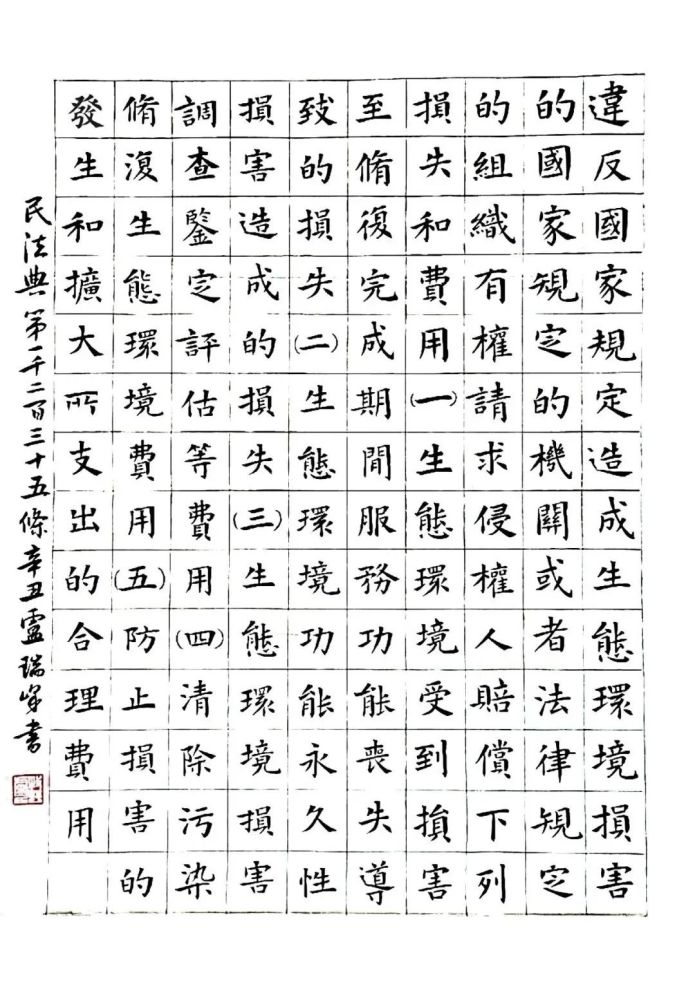 違反國家規定造成生態環境損害
的國家規定的機關或者法律規定
的組織有權請求侵權人賠償下列
損失和費用(一)生態環境受到損害
至脩復完成期間服務功能喪失導
致的損失(二)生態環境功能永久性
損害造成的損失(三)生態環境損害
調查鑒定評估等費用(四)清除污染
脩復生態環境費用(五)防止損害的
發生和擴大所支出的合理費用
民法典第一千二百三十五條辛丑盧瑞峰書